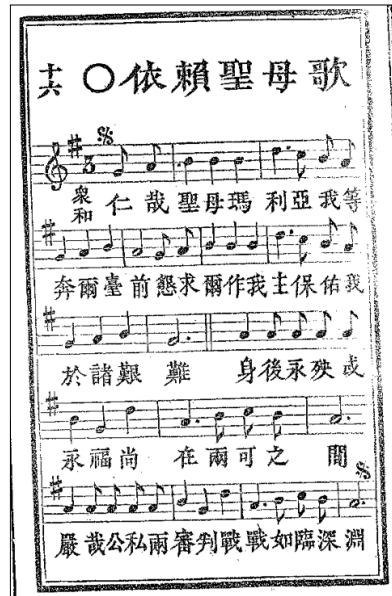 十六 〇依賴聖母歌
衆和 仁哉聖母瑪利亞我等
奔爾臺前懇求爾作我主保佑我
於諸艱難 身後永殃或
永福尚在兩可之間
嚴哉公私兩審判戰戰如臨深淵